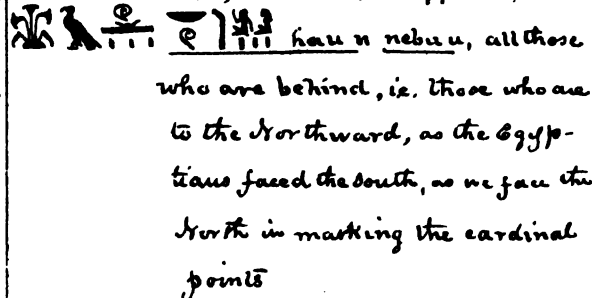 hau n nebu u, all those
who are behind, i.e. those who are
to the Northward, as the Egyp-
tians faced the South, as we face the
North in marking the cardinal
points